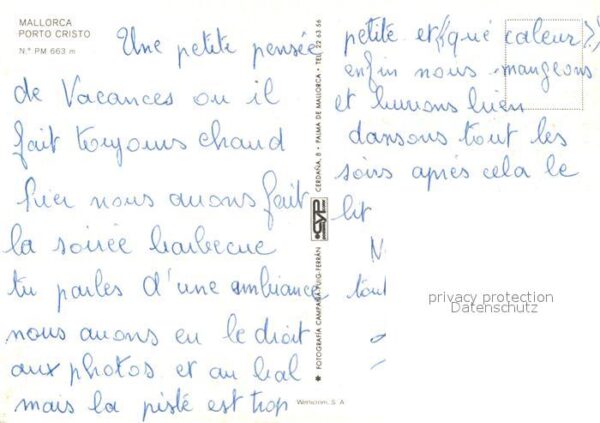 MALLORCA
PORTO CRISTO
N.º PM 663 m
Une petite pensée
de Vacances ou il
fait toujours chaud
hier nous avons fait
la soirée barbecue
tu parles d'une ambiance
nous avons eu le droit
aux photos et au bal
mais la piste est trop
petite et (qué caleur?)
enfin nous mangeons
et buvons bien
dansons tout les
soirs après cela le
lit
N
tout
FOTOGRAFIA CAMPAÑA PUIG-FERRÁN
CYP
CERDAÑA, 8 • PALMA DE MALLORCA • TEL. 22 63 56
S. A.
privacy protection
Datenschutz